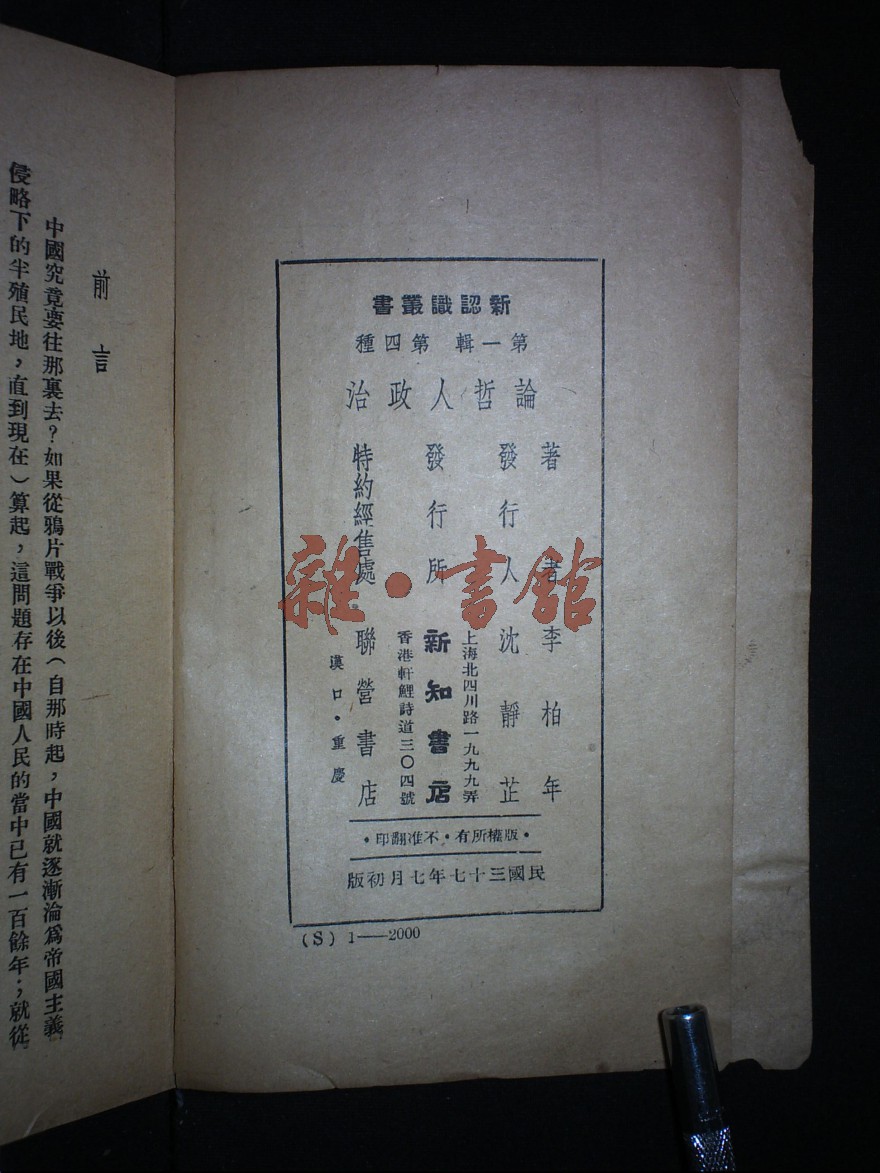 新認識叢書
第一輯 第四種
論哲人政治
著者 李柏年
發行人 沈靜芷
上海北四川路一九九九弄
發行所 新知書店
香港軒鯉詩道三〇四號
特約經售處 聯營書店
漢口·重慶
·版權所有·不准翻印·
民國三十七年七月初版
(S) 1——2000
雜·書館
前言
中國究竟要往那裏去?如果從鴉片戰爭以後(自那時起,中國就逐漸淪爲帝國主義
侵略下的半殖民地,直到現在)算起,這問題存在中國人民的當中已有一百餘年;就從